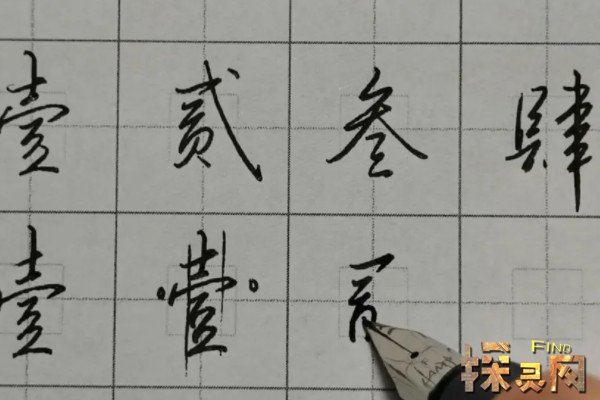 壹 贰 叁 肆
壹 壹
FIND
探灵网